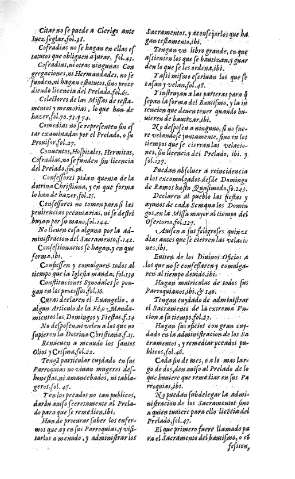 Citar no se puede a Clerigo ante
Iuez seglar, fol. 38.
Cofradias no se hagan en ellas estatutos
que obliguen a jurar. fol.
Cofradias, ni otras ningunas Congregaciones,
ni Hermandades, no se
funden, ni hagan estatutos, sin
licencia del Prelado. fol. 65.
Colectores de las Missas de testamentos
y memorias, lo que han de
hazer, fol. 70. 71. &74.
Comedias no se representen sin estar
examinadas por el Prelado, o su
Prouisor fol. 27.
Conuentos, Hospitales, Hermitas,
Cofradias, no se funden sin licencia
del Prelado, fol. 96.
Confessores pidan quenta de la
dotrina Christiana, y en que forma
lo han de hazer, fol. 25.
Confessores no tomen para si las
penitencias pecuniarias, ni se distribuyan
por su mano, fol.
No lleuen cosa alguna por la administracion
del Sacramento, fol. 142.
Confessionarios se hagan, y en que
forma, ibi.
Confiessen y comulguen todos al
tiempo que la Iglesia manda, fol. 139
Constituciones Synodales se pongan
en las Iglesias, fol. 22.
Curas declaren el Euangelio, o
algun Articulo de la Fè, o Mandamientos
los Domingos y Fiestas, f. 24
No desposen, ni velen a los que no
supieren la Dotrina Christiana, f. 25.
Renueuen a menudo los santos
Olios y Crisma, fol. 22.
Tengā particular cuydado en sus
Parroquias no viuan mugeres deshonestas,
ni amancebados, ni tablageros,
fol. 45.
Y en los pecados no tan publicos,
daràn auiso secretamente al Prelado
para que se remedien, ibi.
Han de procurar saber los enfermos
que ay en sus Parroquias, y visitarlos
a menudo, y administrar los
Sacramentos, y aconsejarlos que hagan
testamento, ibi.
Tengan vn libro grande, en que
assienten los que se bautizan, y guarden
lo que se les ordena, ibi.
Y assimismo escriuan los que se
casan y velan, fol. 48.
Y instruyan a las parteras para q̄
sepan la forma del Baptismo, y la intencion
que deuen tener quando huuieren
de bautizar, ibi.
No desposen a ninguno, si no fuere
velandose juntamente, sino en los
tiempos que se cierran las velaciones,
sin licencia del Prelado, ibi. y
fol. 227.
Puedan absoluer a reincidencia
a los excomulgados desde Domingo
de Ramos hasta Quasimodo, fo. 245.
Declaren al pueblo las fiestas y
ayunos de cada Semana los Domingos
en la Missa mayor al tiempo del
Ofertorio, fol. 227.
Auisen a sus feligreses quinze
dias antes que se cierren las velaciones,
ibi.
Euiten de los Diuinos Oficios a
los que no se confessaren y comulgaren
al tiempo deuido, ibi.
Hagan matriculas de todos sus
Parroquianos, ibi, & 240.
Tengan cuydado de administrar
el Sacramento de la extrema Vncion
a su tiempo, fol. 27.
Hagan su oficio con gran cuydado
en la administracion de los Sacramentos,
y remediar pecados publicos,
fol. 46.
Cada sin de mes, o a lo mas largo
de dos, den auiso al Prelado de lo
que huuiere que remediar en sus Parroquias,
ibi.
No puedan subdelegar la administracion
de los Sacramentos sino
a quien tuuiere para ello licencia del
Prelado, fol. 47.
El que primero fuere llamado para
el Sacramento del bautismo, o confession,